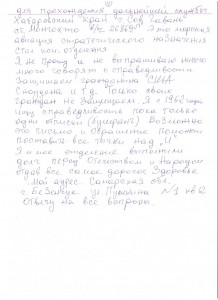 для прохождения дальнейшей службы
Хабаровский край г Сов Гавань
ст. Монгохто в/ч Это морская
авиация стратегического назначения
Стал ком. отделения
Я не прошу и не выпрашиваю много
много говорят о справедливости
Защищаем гражданина США
Сноудена и т.д. Только своих
граждан не защищаем. Я с 196 года
ищу справедливость пока только
одни отписки Возможно
это письмо и обращение поможет
поставить все точки над "И"
Я и мое отделение выполнили
долг перед Отечеством и Народом
отдав все самое дорогое Здоровье
Мой адрес. Самарская обл.
г. Безенчук ул Пушкина №1 кв
Отвечу на все вопросы.